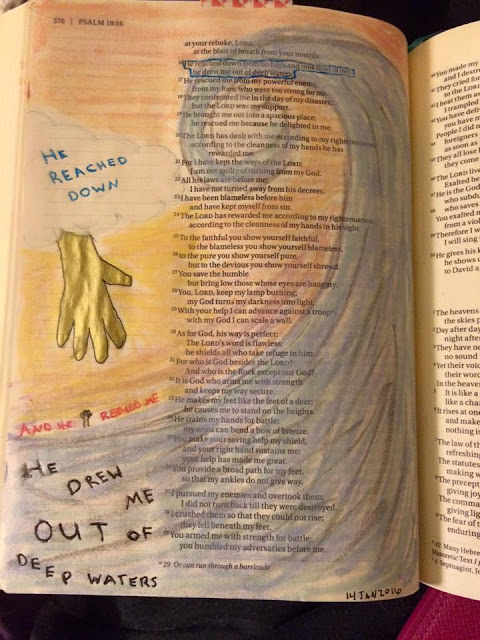 576 | PSALM 18:16
at your rebuke, LORD,
at the blast of breath from your nostrils.
16 He reached down from on high and took hold of me;
he drew me out of deep waters.
17 He rescued me from my powerful enemy,
from my foes, who were too strong for me.
18 They confronted me in the day of my disaster,
but the LORD was my support.
19 He brought me out into a spacious place;
he rescued me because he delighted in me.
20 The LORD has dealt with me according to my righteousness;
according to the cleanness of my hands he has
rewarded me.
21 For I have kept the ways of the LORD;
I am not guilty of turning from my God.
22 All his laws are before me;
I have not turned away from his decrees.
23 I have been blameless before him
and have kept myself from sin.
24 The LORD has rewarded me according to my righteousness,
according to the cleanness of my hands in his sight.
25 To the faithful you show yourself faithful,
to the blameless you show yourself blameless,
26 to the pure you show yourself pure,
but to the devious you show yourself shrewd.
27 You save the humble
but bring low those whose eyes are haughty.
28 You, LORD, keep my lamp burning;
my God turns my darkness into light.
29 With your help I can advance against a troop;
with my God I can scale a wall.
30 As for God, his way is perfect:
The LORD's word is flawless;
he shields all who take refuge in him.
31 For who is God besides the LORD?
And who is the Rock except our God?
32 It is God who arms me with strength
and keeps my way secure.
33 He makes my feet like the feet of a deer;
he causes me to stand on the heights.
34 He trains my hands for battle;
my arms can bend a bow of bronze.
35 You make your saving help my shield,
and your right hand sustains me;
your help has made me great.
36 You provide a broad path for my feet,
so that my ankles do not give way.
37 I pursued my enemies and overtook them;
I did not turn back till they were destroyed.
38 I crushed them so that they could not rise;
they fell beneath my feet.
39 You armed me with strength for battle;
you humbled my adversaries before me.
a 29 Or can run through a barricade
HE
REACHED
DOWN
AND HE
ME
HE
DREW
ME
OUT OF
DEEP WATERS
14 JAN 2016
40 You made my
and I destr
41 They cried for
to the Lor
42 I beat them
I trampled
43 You have deliv
you have
People I did n
44 foreigners
as soon as
45 They all lose
they come
46 The LORD lives
Exalted be
47 He is the God
who subdu
48 who saves
You exalted
from a viol
49 Therefore I w
I will sing
50 He gives his k
he shows u
to David a
1 The heavens
the skies p
2 Day after day
night after
3 They have no
no sound
4 Yet their voic
their word
In the heaven
5 It is like a
like a cha
6 It rises at one
and make
nothing is
7 The law of th
refreshing
The statutes
making w
8 The precept
giving joy
The comma
giving lig
9 The fear of t
enduring
42 Many Hebre
Masoretic Text
Septuagint,